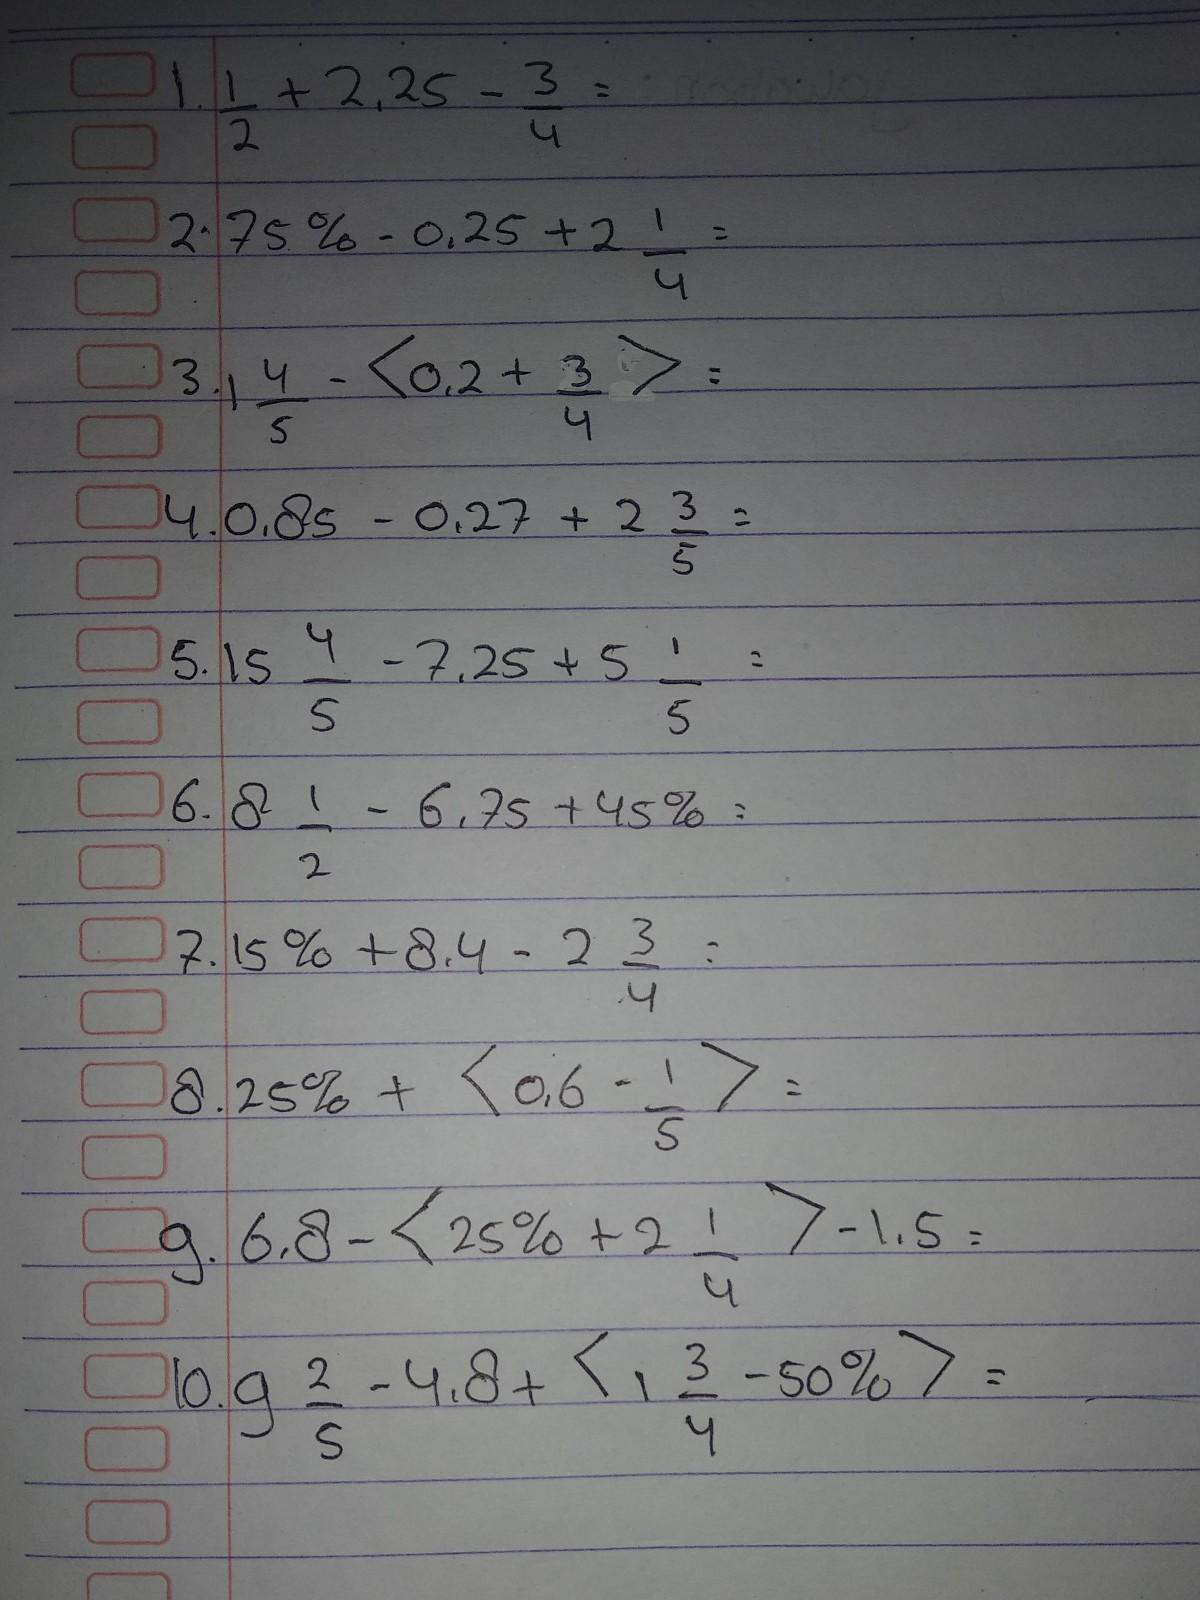 1. 1/2 + 2,25 - 3/4 =
2. 75% - 0,25 + 2 1/4 =
3. 1 4/5 - <0,2 + 3/4> =
4. 0,85 - 0,27 + 2 3/5 =
5. 15 4/5 - 7,25 + 5 1/5 =
6. 8 1/2 - 6,75 + 45% =
7. 15% + 8,4 - 2 3/4 =
8. 25% + <0,6 - 1/5> =
9. 6,8 - <25% + 2 1/4> - 1,5 =
10. 9 2/5 - 4,8 + <1 3/4 - 50%> =